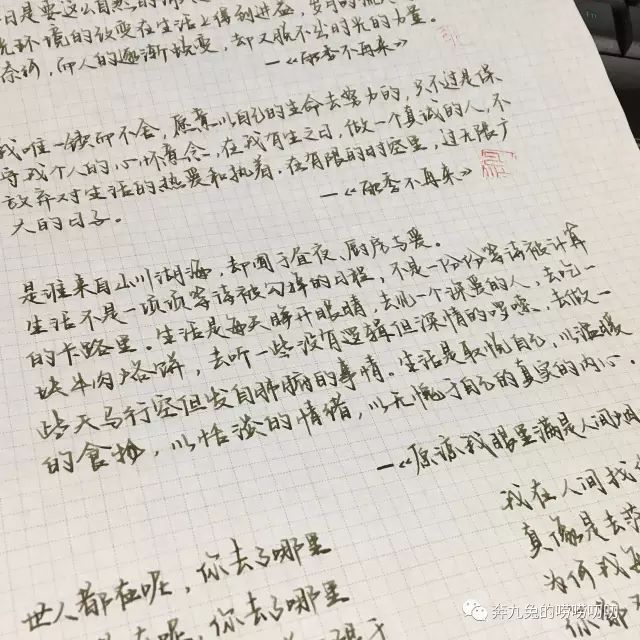 日是要这么自然的
环境的改变在生活上得到进益，岁月的流
奈何，而人的逐渐蜕变，却又脱不出时光的力量。
—《雨季不再来》
我唯一锲而不舍，愿意以自己的生命去努力的，只不过是保
守我个人的心怀意念，在我有生之日，做一个真诚的人，不
放弃对生活的热爱和执着，在有限的时空里，过无限广
大的日子。
—《雨季不再来》
是谁来自山川湖海，却囿于昼夜、厨房与爱。
生活不是一项项等待被勾掉的日程，不是一份份等待被计算
的卡路里。生活是每天睁开眼睛，去见一个深爱的人，去吃一
块牛肉烙饼，去听一些没有逻辑但深情的啰嗦，去做一
些天马行空但发自肺腑的事情。生活是取悦自己，以温暖
的食物，以恰淡的情绪，以无愧于自己的真实的内心。
—《原谅我眼里满是人间烟
我在人间找
真像是去
为何我
世人都在呢，你去了哪里
在呢，你去了哪里
奔九兔的唠唠叨叨